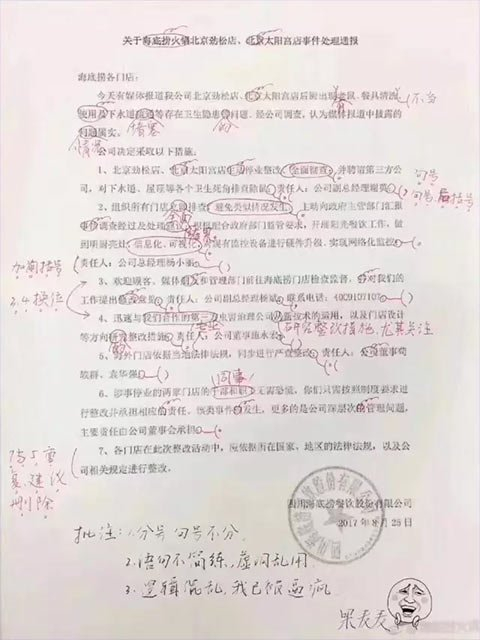 关于海底捞火锅北京劲松店、北京太阳宫店事件处理通报
海底捞各门店:
今天有媒体报道我公司北京劲松店、北京太阳宫店后厨出现老鼠、餐具清洗、
有
不当
使用及下水道疏通等存在卫生隐患等问题。经公司调查,认为媒体报道中披露的
情况
的
问题属实。
情况
公司决定采取以下措施:
1、北京劲松店、北京太阳宫店主动停业整改、全面彻查;并聘请第三方公
司,对下水道、屋顶等各个卫生死角排查除鼠;责任人:公司副总经理谢英;
句号
句号 后括号
2、组织所有门店立即排查,避免类似情况发生;主动向政府主管部门汇报
全面
事情调查经过及处理建议;积极配合政府部门监管要求,开展阳光餐饮工作,做
结果
到明厨亮灶,信息化、可视化,对现有监控设备进行硬件升级,实现网络化监控;
加前括号
责任人:公司总经理杨小丽;
3、欢迎顾客、媒体朋友和管理部门前往海底捞门店检查监督,并对我们的
3.4换位
工作提出检查意见;责任人:公司副总经理杨斌;联系电话:4009107107;
4、迅速与我们合作的第三方虫害治理公司从新技术的运用,以及门店设计
专业
研究整改措施,尤其关注
等方向研究整改措施;责任人:公司董事施永宏;
的
5、海外门店依据当地法律法规,同步进行严查整改;责任人:公司董事苟
轶群、袁华强;
同事
6、涉事停业的两家门店的干部和职工无需恐慌,你们只需按照制度要求进
行整改并承担相应的责任。该类事件的发生,更多的是公司深层次的管理问题,
主要责任由公司董事会承担。
7、各门店在此次整改活动中,应依据所在国家、地区的法律法规,以及公
司相关规定进行整改。
7与5重
复,建议
删除
四川海底捞餐饮股份有限公司
2017年8月25日
批注:1.分号句号不分
2.语句不简练,虚词乱用
3.逻辑混乱,我已很逼疯